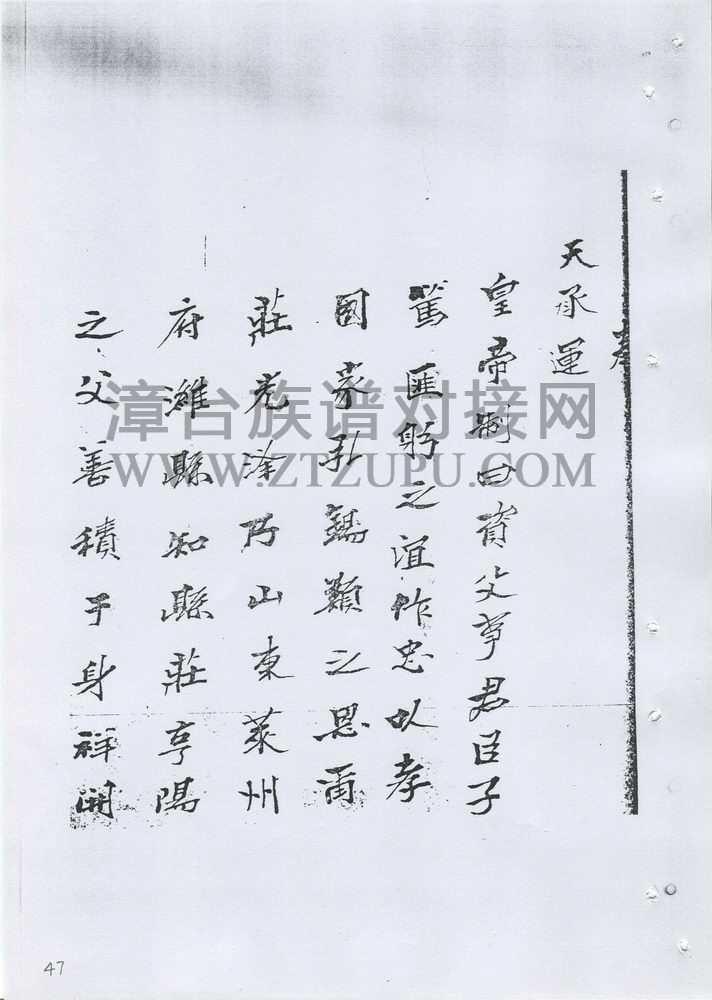 奉
天承運
皇帝制曰資父事君臣子
篤匪躬之誼作忠以孝
國家弘錫類之恩爾
莊光涂乃山東萊州
府濰縣知縣莊亨陽
之父善積于身祥開
漳台族谱对接网
WWW.ZTZUPU.COM
47